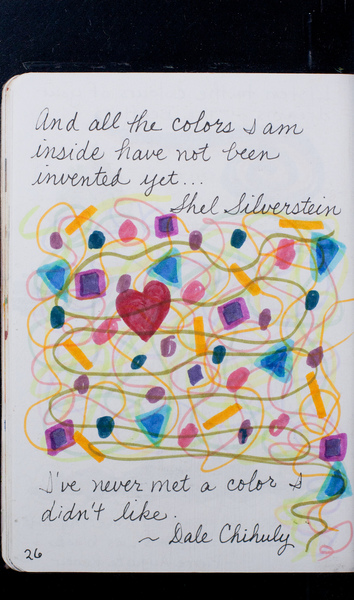 And all the colors I am
inside have not been
invented yet...
Shel Silverstein
I've never met a color I
didn't like.
~ Dale Chihuly
26